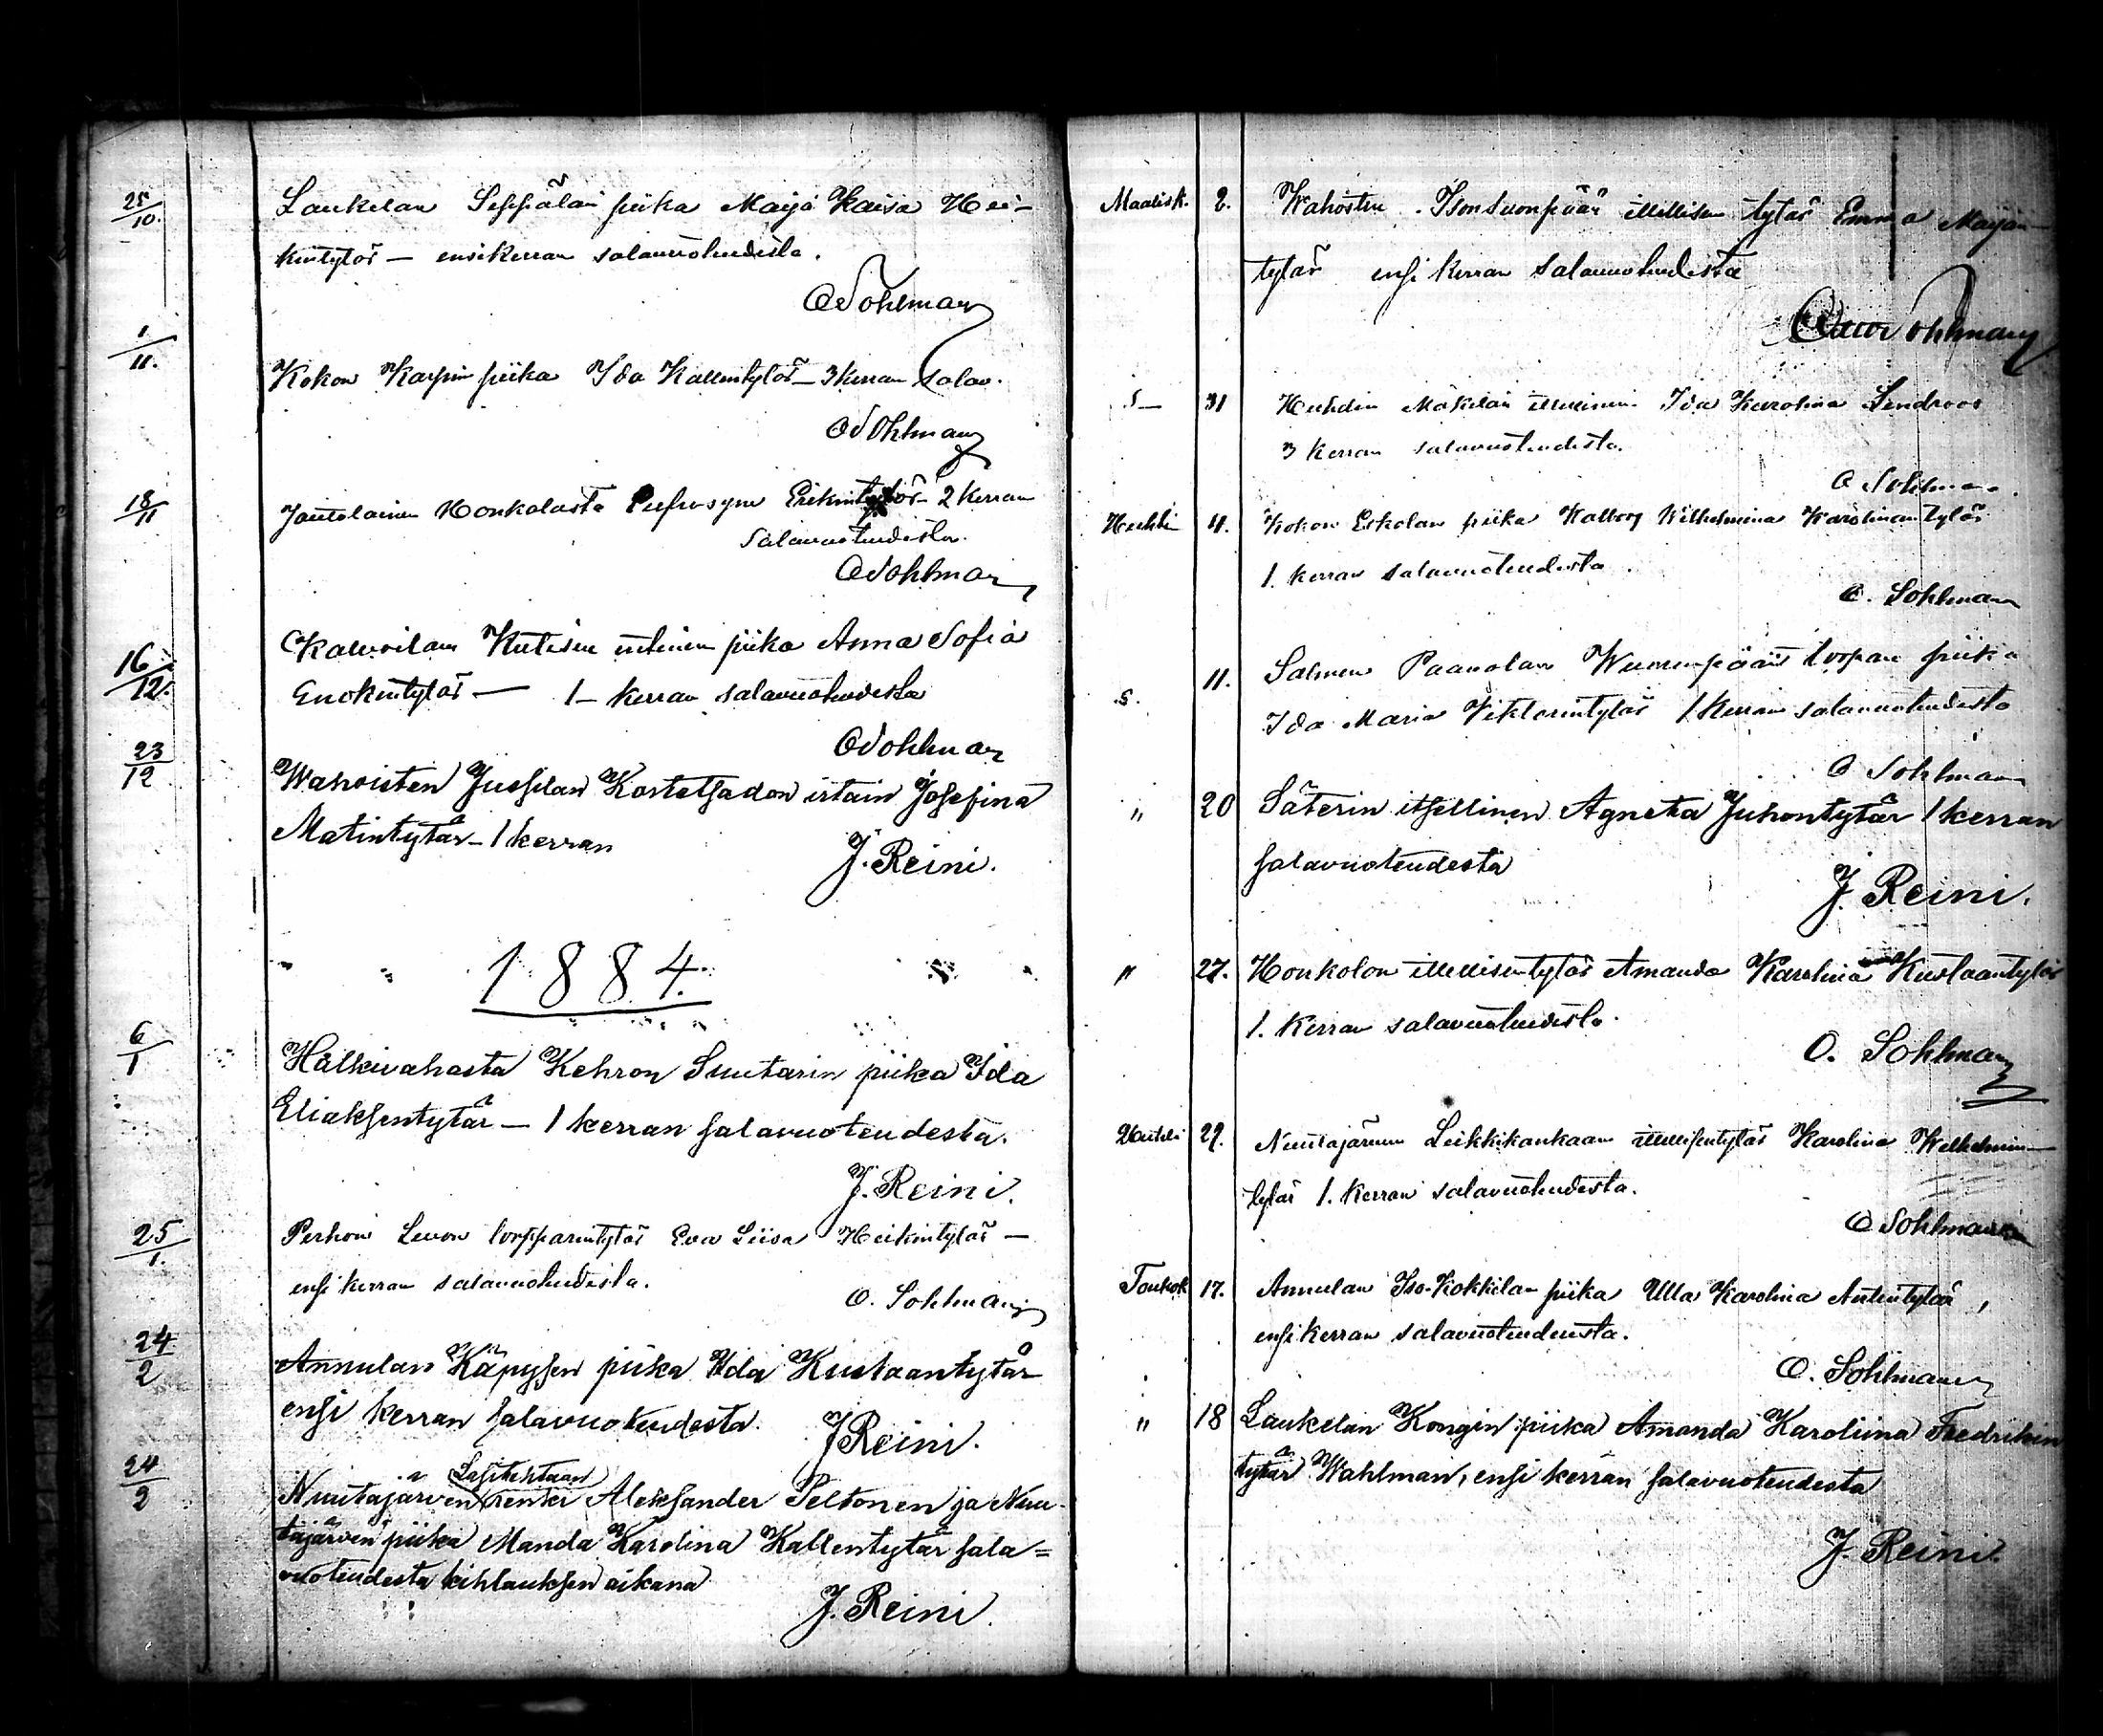 25/10. Laukelan Seppälän piika Maija Kaisa Hei-
kintytär — ensikerran salavuoteudesta.
O Sohlman
1/11. Kokon Karpin piika Ida Kallentytär — 3 kerran salav.
O Sohlman
18/11 Honkalasta Eufrosyne Erikintytär — 2 kerran
salavuoteudesta.
O Sohlman
16/12. Anna Sofia
Enokintytär — 1 — kerran salavuoteudesta
O Sohlman
23/12 Wahoisten Jussilan irtain Josefina
Matintytär — 1 kerran
J. Reini.
1884.
6/1 Hälkivahasta Kehron Suutarin piika Ida
Eliaksentytär — 1 kerran salavuoteudesta.
J. Reini.
25/1. Perhon Levon torpparintytär Eva Liisa Heikintytär —
ensi kerran salavuoteudesta.
O. Sohlman
24/2 Annulan Käpysen piika Ida Kustaantytär
ensi kerran salavuoteudesta.
J Reini.
Lasitehtaan
24/2 Nuutajärven renki Aleksander Peltonen ja Nuu-
tajärven piika Manda Karolina Kallentytär sala=
vuoteudesta kihlauksen aikana
J. Reini.
Maalisk. 2. Wahosten Isonsuonpään itsellisen tytär Emma Maijan-
tytär ensi kerran salavuoteudesta
Sohlman
S— 31 Huhdin Mäkilän itsellinen Ida Karolina Lindroos
3 kerran salavuoteudesta.
O Sohlman.
Huhti 11. Kokon Eskolan piika Walborg Wilhelmina Karolinantytär
1. kerran salavuoteudesta.
O. Sohlman
S. 11. Salmen Paanolan Wuorenpään torpan piika
Ida Maria Viktorintytär 1 kerran salavuoteudesta
O Sohlman
" 20 Säterin itsellinen Agneta Juhontytär 1 kerran
salavuoteudesta
J. Reini.
" 27. Honkolan itsellisentytär Amanda Karolina Kustaantytär
1. kerran salavuoteudesta.
O. Sohlman
Huhti 29. Nuutajärven Leikkikankaan itsellisentytär Karolina Wilhelmiinan-
tytär 1. kerran salavuoteudesta.
O Sohlman
Toukok 17. Annulan Iso-Kokkilan piika Ulla Karolina Antintytär,
ensi kerran salavuoteudesta.
O. Sohlman
" 18 Laukelan Kongin piika Amanda Karoliina Fredrikin
tytär Wahlman, ensi kerran salavuoteudesta
J. Reini.